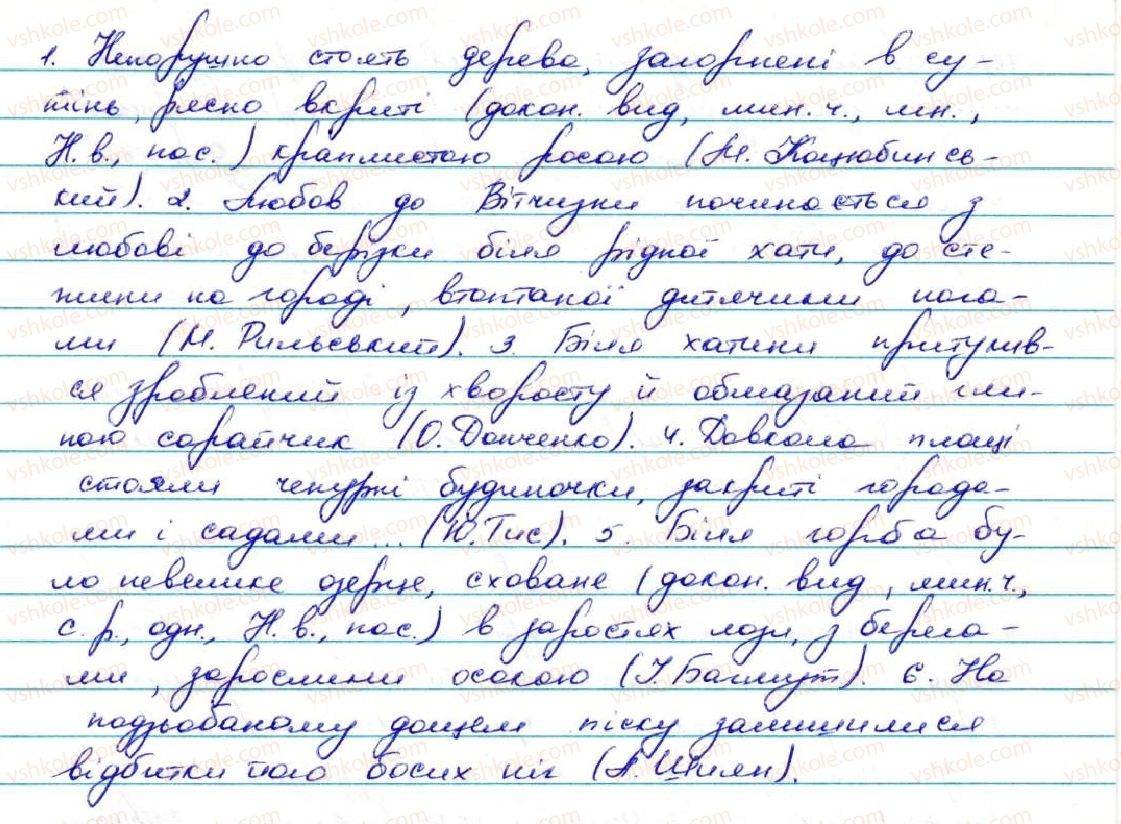 1. Непорушно стоять дерева, загорнені в су-
тінь, рясно вкриті (докон. вид, мин. ч., мн.,
Н. в., пас.) краплистою росою (М. Коцюбинсь-
кий). 2. Любов до Вітчизни починається з
любові до берізки біля рідної хати, до сте-
жини на городі, втоптаної дитячими нога-
ми (М. Рильський). 3. Біля хатини притулив-
ся зроблений із хворосту й обмазаний гли-
ною сарайчик (О. Донченко). 4. Довкола площі
стояли чепурні будиночки, закриті города-
ми і садами... (Ю. Тис). 5. Біля горба бу-
ло невелике озерце, сховане (докон. вид, мин. ч.,
с. р., одн., Н. в., пас.) в заростях лози, з берега-
ми, зарослими осокою (І. Багмут). 6. На
подзьобаному дощем піску залишилися
відбитки його босих ніг (А. Шиян).